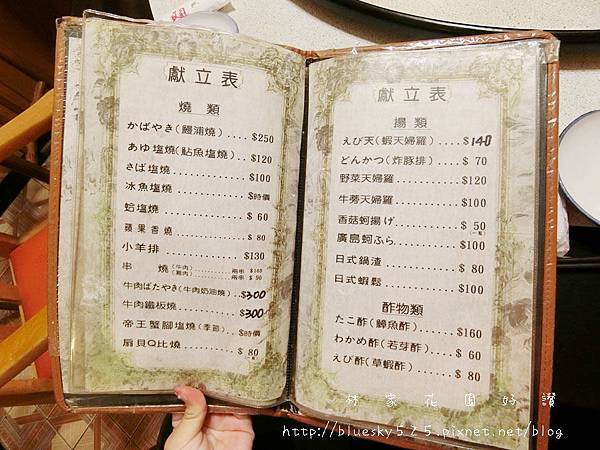 獻立表
燒 類
かばやき(鰻浦燒)....$250
あゆ塩燒(鮎魚塩燒)..$120
さば塩燒............$100
冰魚塩燒............$時價
蛤塩燒..............$ 60
蘋果香燒............$ 80
小羊排..............$130
串 燒(牛肉)........兩串 $140
(雞肉)........兩串 $ 90
牛肉ばたやき(牛肉奶油燒)..$300
牛肉鐵板燒..........$300
帝王蟹腳塩燒(季節)..$時價
扇貝Q比燒..........$ 80
獻立表
揚 類
えび天(蝦天婦羅)....$140
どんかつ(炸豚排)....$ 70
野菜天婦羅..........$120
牛蒡天婦羅..........$100
香菇蚵揚げ..........$ 50
廣島蚵ふら..........$100
日式鍋渣............$ 80
日式蝦鬆............$100
酢物類
たこ酢(鱆魚酢)......$160
わかめ酢(若芽酢)....$ 60
えび酢(草蝦酢)......$ 80
林家花園好讚
http://bluesky525.pixnet.net/blog